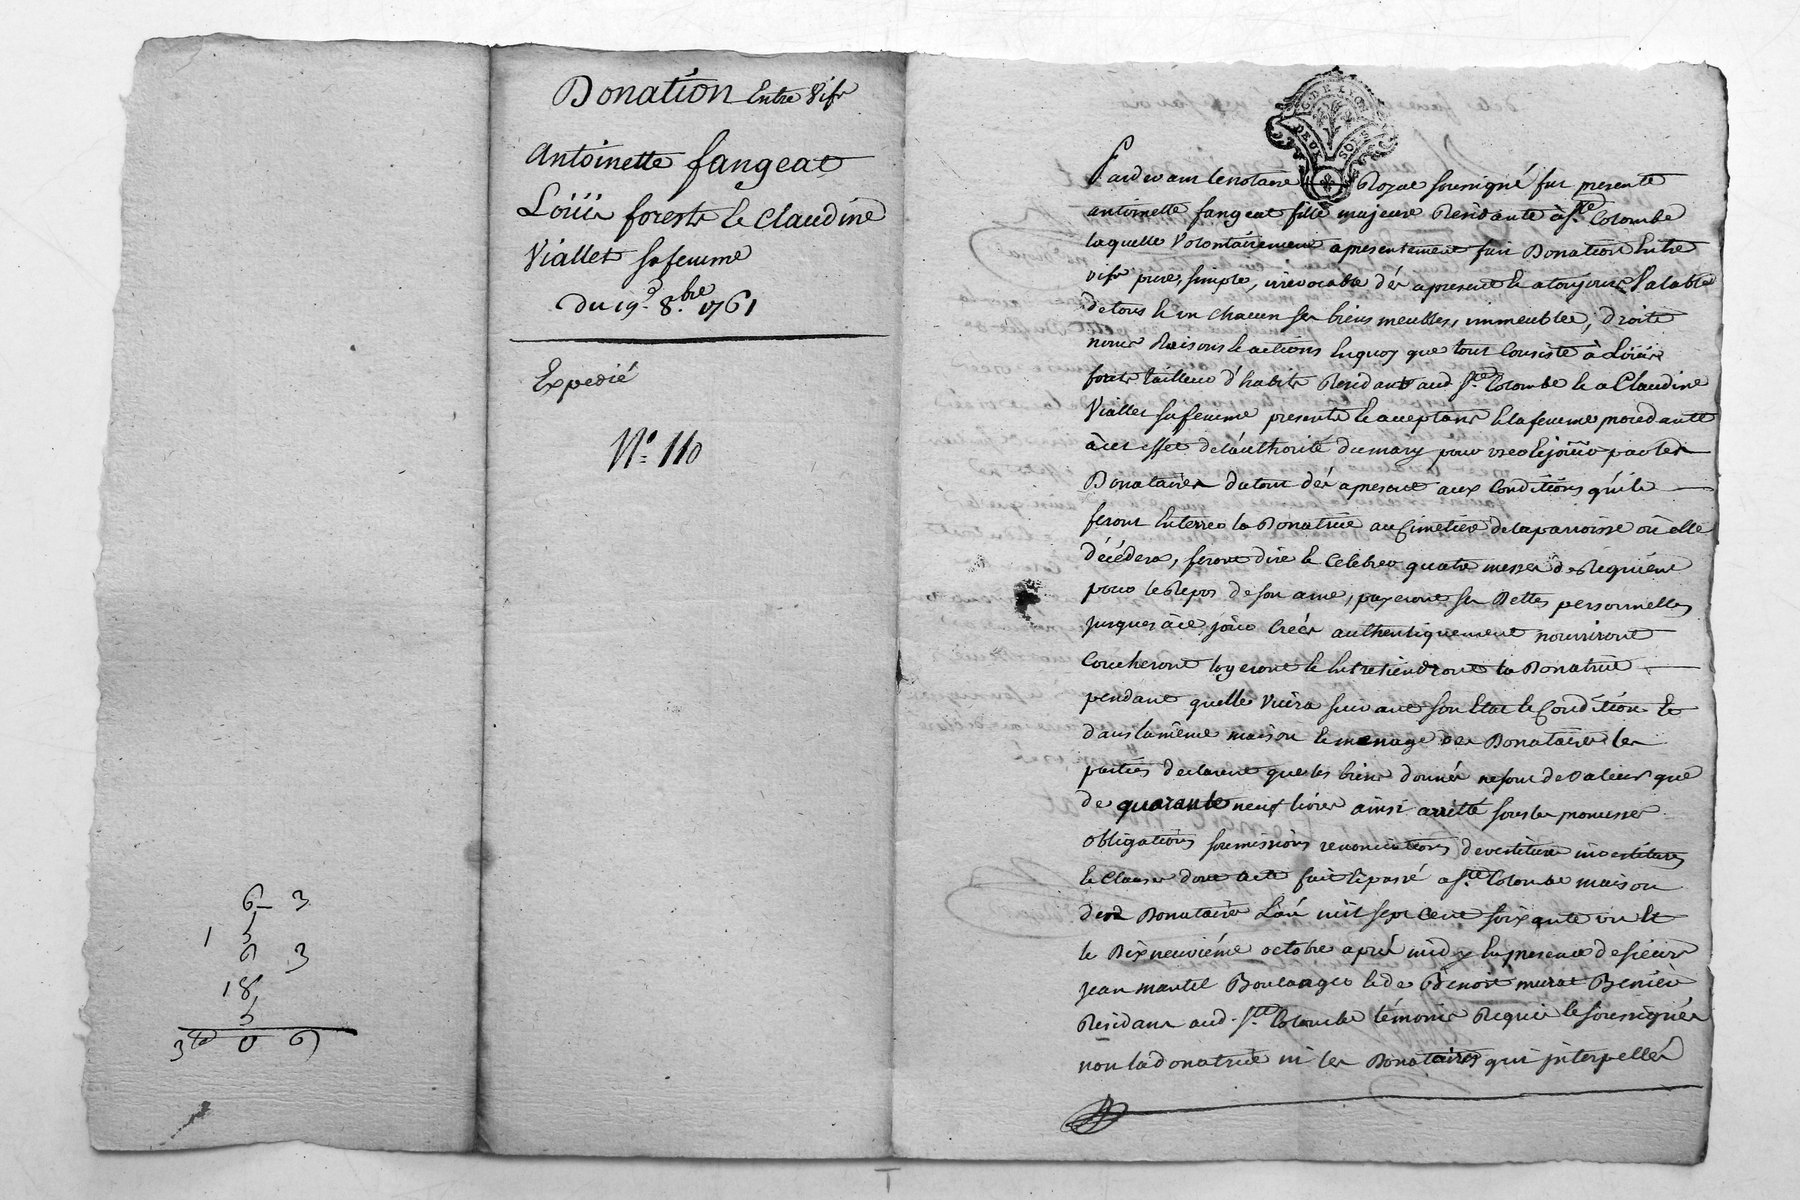 Donation Entre Vifs
Antoinette fangeat
Loüis forests & Claudine
Viallet sa femme
du 19.e 8.bre 1761
Expedié
N.o 110
6 3
1 5
6 3
18
5
3tt 0 6
G. DE LYON
DEUX SOLS
Pardevant le notaire Royal soussigné fut presente
antoinette fangeat fille majeure Residante à S.te Colombe
laquelle Volontairement a presentement fait Donation Entre
vifs pure, simple, irrevocable dés apresent & atoujours Valable
de tous & un chacun ses biens meubles, immeubles, droits
noms Raisons & actions Enquoy que tout Consiste à Loüis
forets tailleur d'habits Residant aud. S.te Colombe & a Claudine
Viallet sa femme presents & acceptans & la femme procedante
à cet effet de l'authorité du mary pour user & joüir par les
Donataires du tout dés apresent aux Conditions qu'ils
feront Enterrer la Donatrice au Cimetiere de la parroisse où elle
décédera, feront dire & Celebrer quatre messes de Requiem
pour le Repos de son ame, payeront ses Dettes personnelles
jusques à ce jour Créés authentiquement nourriront
Coucheront logeront & Entretiendront la Donatrice
pendant quelle vivra suivant son Etat & Condition Et
dans la même maison & menage des Donataires les
parties declarent que les biens donnés ne sont de valeur que
de quarante neuf livres ainsi arretté sous les promesses
obligations soumissions renonciations devestiture investitures
& Clauses dont acte fait & passé a S.te Colombe maison
desd. Donataires L'an mil sept cent soixante un Et
le Dix neuviéme octobre aprés midy En presence de sieurs
jean mantel Boulanger & de Benoit murat
Residans aud. S.te Colombe témoins Requis & soussignés
non la donatrice ni les Donataires qui interpellés